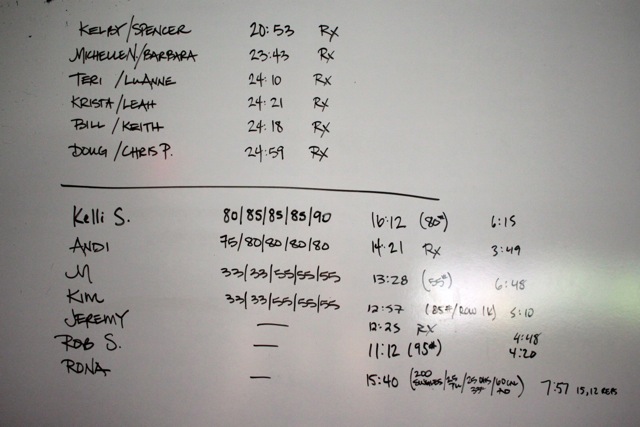 KELBY/SPENCER 20:53 Rx
MICHELLE N/BARBARA 23:43 Rx
TERI /LUANNE 24:10 Rx
KRISTA/LEAH 24:21 Rx
BILL /KEITH 24:18 Rx
DOUG /CHRIS P. 24:59 Rx
Kelli S. 80/85/85/85/90 16:12 (80#) 6:15
ANDI 75/80/80/80/80 14:21 Rx 3:49
M 33/33/55/55/55 13:28 (55#) 6:48
KIM 33/33/55/55/55 12:57 (85#/ROW 1K) 5:10
JEREMY — 12:25 Rx 4:48
ROB S. — 11:12 (95#) 4:20
RONA — 15:40 (200 /25 /25 /60 CAL 35# ) 7:57 15,12 REPS